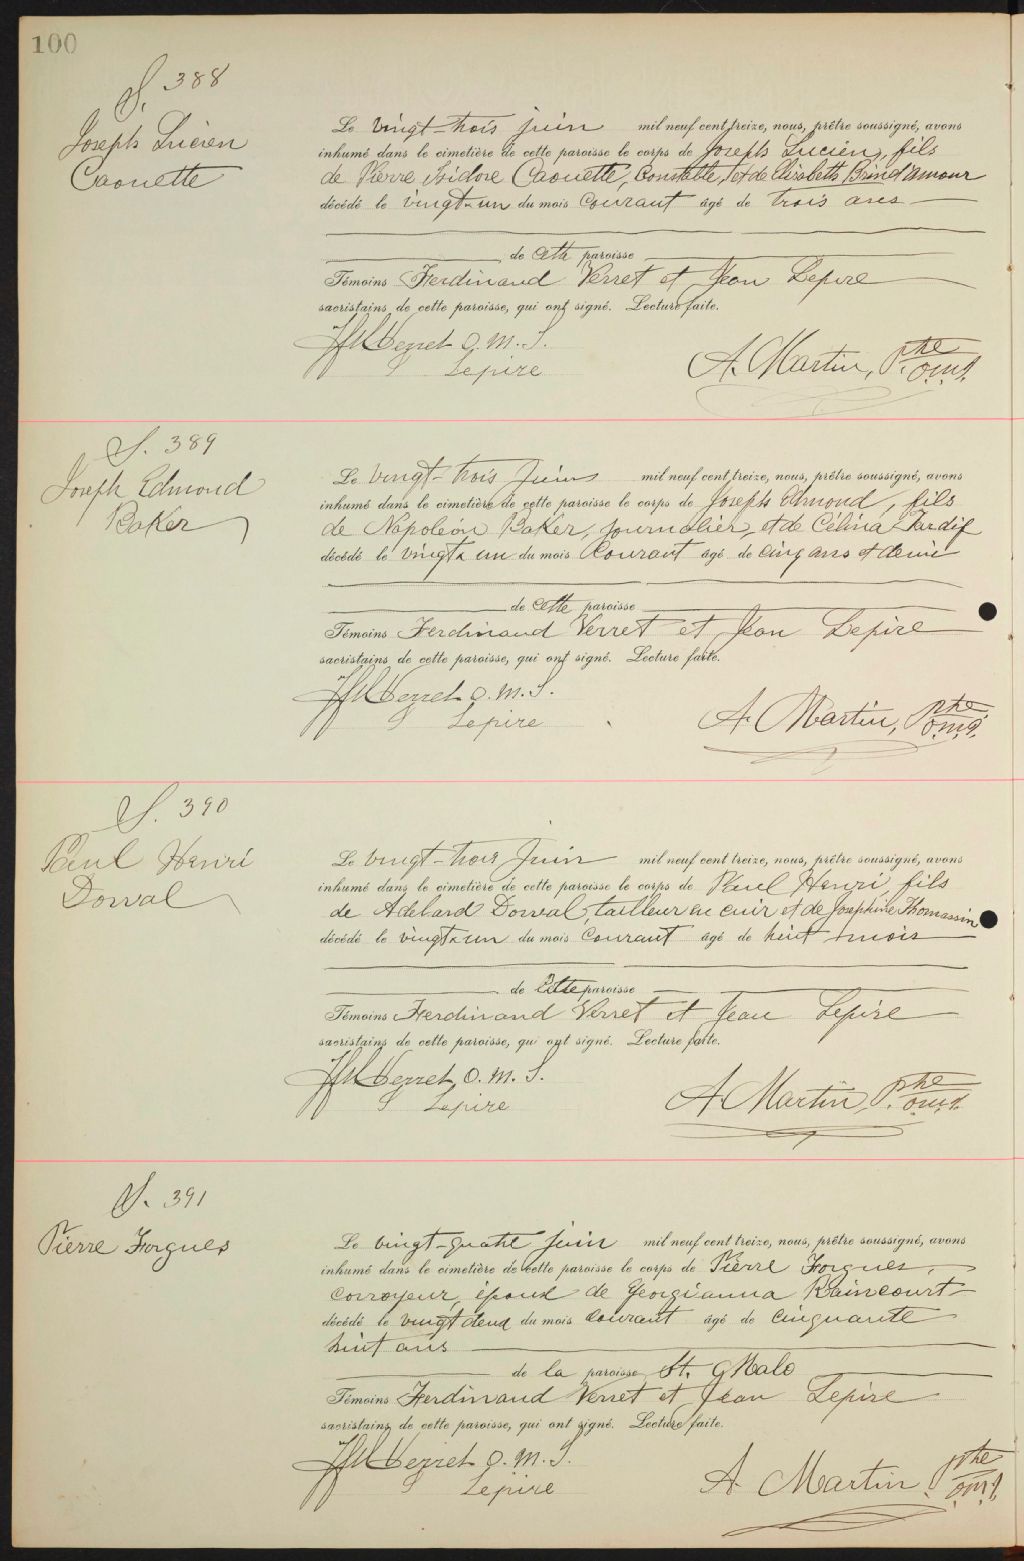 100
S. 388
Joseph Lucien
Caouette
Le vingt-trois juin mil neuf cent treize, nous, prêtre soussigné, avons
inhumé dans le cimetière de cette paroisse le corps de Joseph Lucien, fils
de Pierre Isidore Caouette, Constable, et de Elisabeth Brind'amour
décédé le vingt-un du mois courant âgé de trois ans
de cette paroisse
Témoins Ferdinand Verret et Jean Lepire
sacristains de cette paroisse, qui ont signé. Lecture faite.
Verret O.M.S.
Lepire
A. Martin, Ptre
o.m.i.
S. 389
Joseph Edmond
Baker
Le vingt-trois juin mil neuf cent treize, nous, prêtre soussigné, avons
inhumé dans le cimetière de cette paroisse le corps de Joseph Edmond, fils
de Napoléon Baker, journalier, et de Célina Tardif
décédé le vingt un du mois courant âgé de cinq ans et demi
de cette paroisse
Témoins Ferdinand Verret et Jean Lepire
sacristains de cette paroisse, qui ont signé. Lecture faite.
Verret O.M.S.
Lepire
A. Martin, ptre
o.m.i.
S. 390
Paul Henri
Dorval
Le vingt-trois juin mil neuf cent treize, nous, prêtre soussigné, avons
inhumé dans le cimetière de cette paroisse le corps de Paul Henri, fils
de Adelard Dorval, tailleur en cuir et de Josephine Thomassin
décédé le vingt-un du mois courant âgé de huit mois
de cette paroisse
Témoins Ferdinand Verret et Jean Lepire
sacristains de cette paroisse, qui ont signé. Lecture faite.
Verret O.M.S.
Lepire
A. Martin, Ptre
o.m.i.
S. 391
Pierre Forgues
Le vingt-quatre juin mil neuf cent treize, nous, prêtre soussigné, avons
inhumé dans le cimetière de cette paroisse le corps de Pierre Forgues,
corroyeur, époux de Georgianna Raincourt
décédé le vingt deux du mois courant âgé de cinquante
huit ans
de la paroisse St. Malo
Témoins Ferdinand Verret et Jean Lepire
sacristains de cette paroisse, qui ont signé. Lecture faite.
Verret O.M.S.
Lepire
A. Martin, ptre
o.m.i.